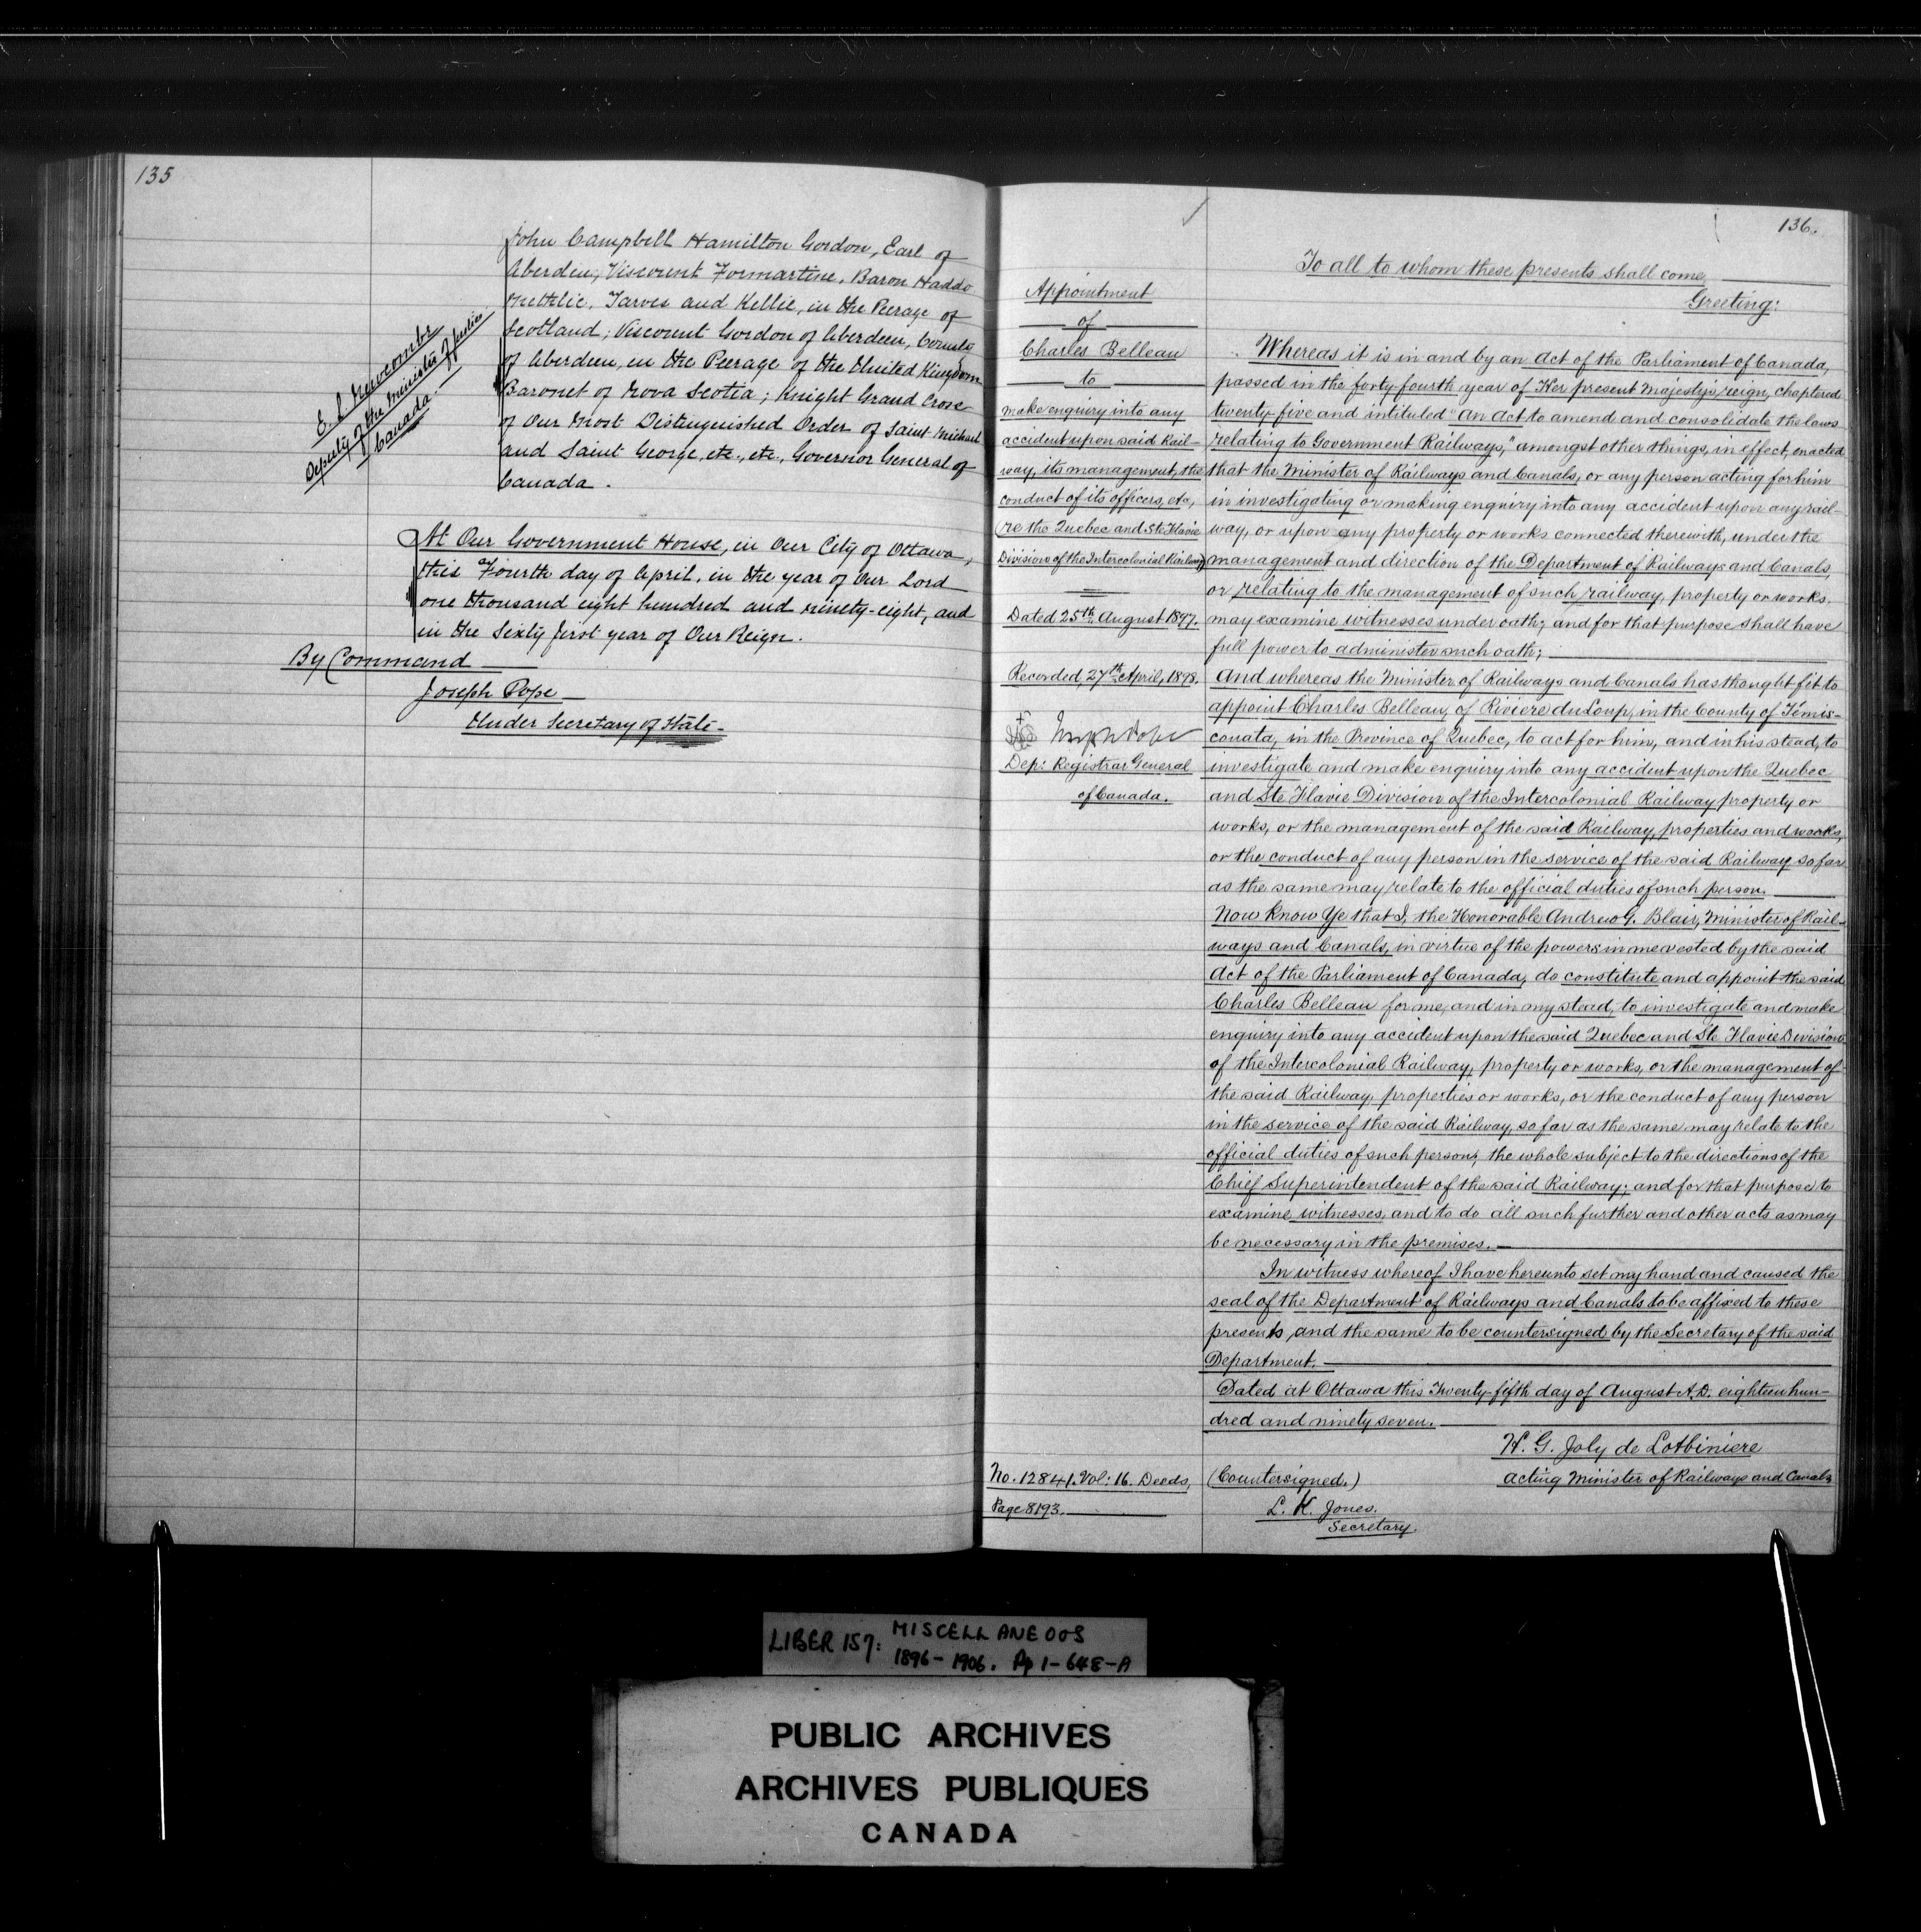 135
John Campbell Hamilton Gordon, Earl of
Aberdeen; Viscount Formartine, Baron Haddo
Methlic, Tarves and Kellie, in the Peerage of
Scotland; Viscount Gordon of Aberdeen, County
of Aberdeen, in the Peerage of the United Kingdom
Baronet of Nova Scotia; Knight Grand Cross
of Our Most Distinguished Order of Saint Michael
and Saint George, etc., etc., Governor General of
Canada.
E. L. Newcombe
Deputy of the Minister of Justice
Canada.
At Our Government House, in Our City of Ottawa,
this Fourth day of April, in the year of Our Lord
one thousand eight hundred and ninety-eight, and
in the Sixty first year of Our Reign.
By Command
Joseph Pope
Under Secretary of State.
136.
Appointment
of
Charles Belleau
to
make enquiry into any
accident upon said Rail-
way, its management, the
conduct of its officers, etc,
(re the Quebec and Ste Flavie
Division of the Intercolonial Railway)
Dated 25th August 1897.
Recorded, 27th April, 1898.
Joseph Pope
Dep: Registrar General
of Canada.
No. 12841. Vol: 16. Deeds,
Page 8193.
To all to whom these presents shall come
Greeting:
Whereas it is in and by an Act of the Parliament of Canada,
passed in the forty-fourth year of Her present Majesty's reign, chaptered
twenty-five and intituled "An Act to amend and consolidate the laws
relating to Government Railways," amongst other things, in effect, enacted
that the Minister of Railways and Canals, or any person acting for him
in investigating or making enquiry into any accident upon any rail-
way, or upon any property or works connected therewith, under the
management and direction of the Department of Railways and Canals,
or relating to the management of such railway, property or works.
may examine witnesses under oath; and for that purpose shall have
full power to administer such oath;
And whereas the Minister of Railways and Canals has thought fit to
appoint Charles Belleau, of Riviere du Loup, in the County of Témis-
couata, in the Province of Quebec, to act for him, and in his stead, to
investigate and make enquiry into any accident upon the Quebec
and Ste Flavie Division of the Intercolonial Railway property or
works, or the management of the said Railway, properties and works,
or the conduct of any person in the service of the said Railway so far
as the same may relate to the official duties of such person.
Now Know Ye that I, the Honorable Andrew G. Blair, Minister of Rail-
ways and Canals, in virtue of the powers in me vested by the said
Act of the Parliament of Canada, do constitute and appoint the said
Charles Belleau for me, and in my stead, to investigate and make
enquiry into any accident upon the said Quebec and Ste Flavie Division
of the Intercolonial Railway, property or works, or the management of
the said Railway, properties or works, or the conduct of any person
in the service of the said Railway, so far as the same may relate to the
official duties of such person, the whole subject to the directions of the
Chief Superintendent of the said Railway; and for that purpose to
examine witnesses, and to do all such further and other acts as may
be necessary in the premises.
In witness whereof I have hereunto set my hand and caused the
seal of the Department of Railways and Canals to be affixed to these
presents, and the same to be countersigned by the Secretary of the said
Department.
Dated at Ottawa this Twenty-fifth day of August A.D. eighteen hun-
dred and ninety seven.
H. G. Joly de Lotbiniere
Acting Minister of Railways and Canals
(Countersigned.)
L. K. Jones.
Secretary.
LIBER 157: MISCELLANEOUS
1896-1906. Pp 1-648-A
PUBLIC ARCHIVES
ARCHIVES PUBLIQUES
CANADA